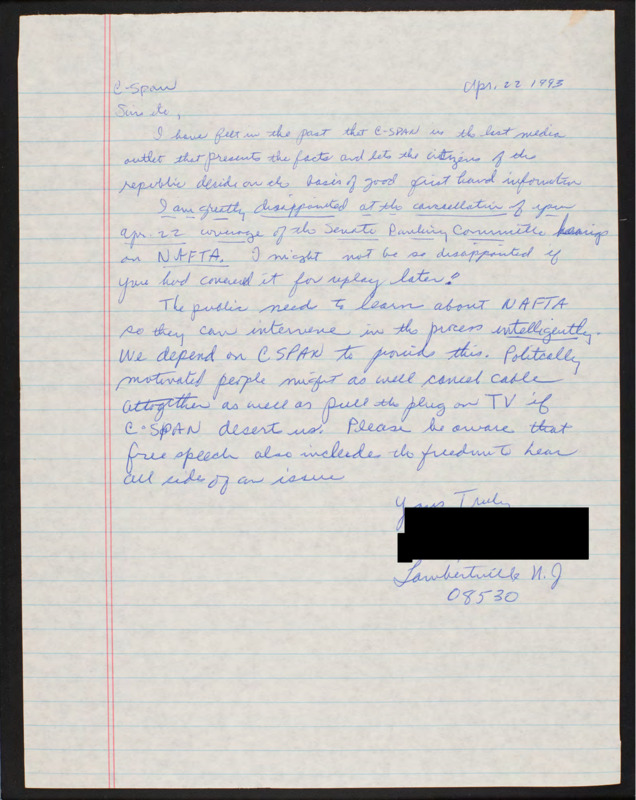 C-Span Apr. 22 1993
I have felt in the past that C-SPAN is the best media
outlet that presents the facts and lets the citizens of the
republic decide on the basis of good first hand information
I am greatly disappointed at the cancellation of your
Apr. 22 coverage of the Senate Banking Committee hearings
on NAFTA. I might not be so disappointed if
you had covered it for replay later!
The public need to learn about NAFTA
so they can intervene in the process intelligently.
We depend on CSPAN to provide this. Politically
motivated people might as well cancel cable
altogether as well as pull the plug on TV if
C-SPAN desert us. Please be aware that
free speech also includes the freedom to hear
all sides of an issue
Yours Truly
Lambertville N.J
08530